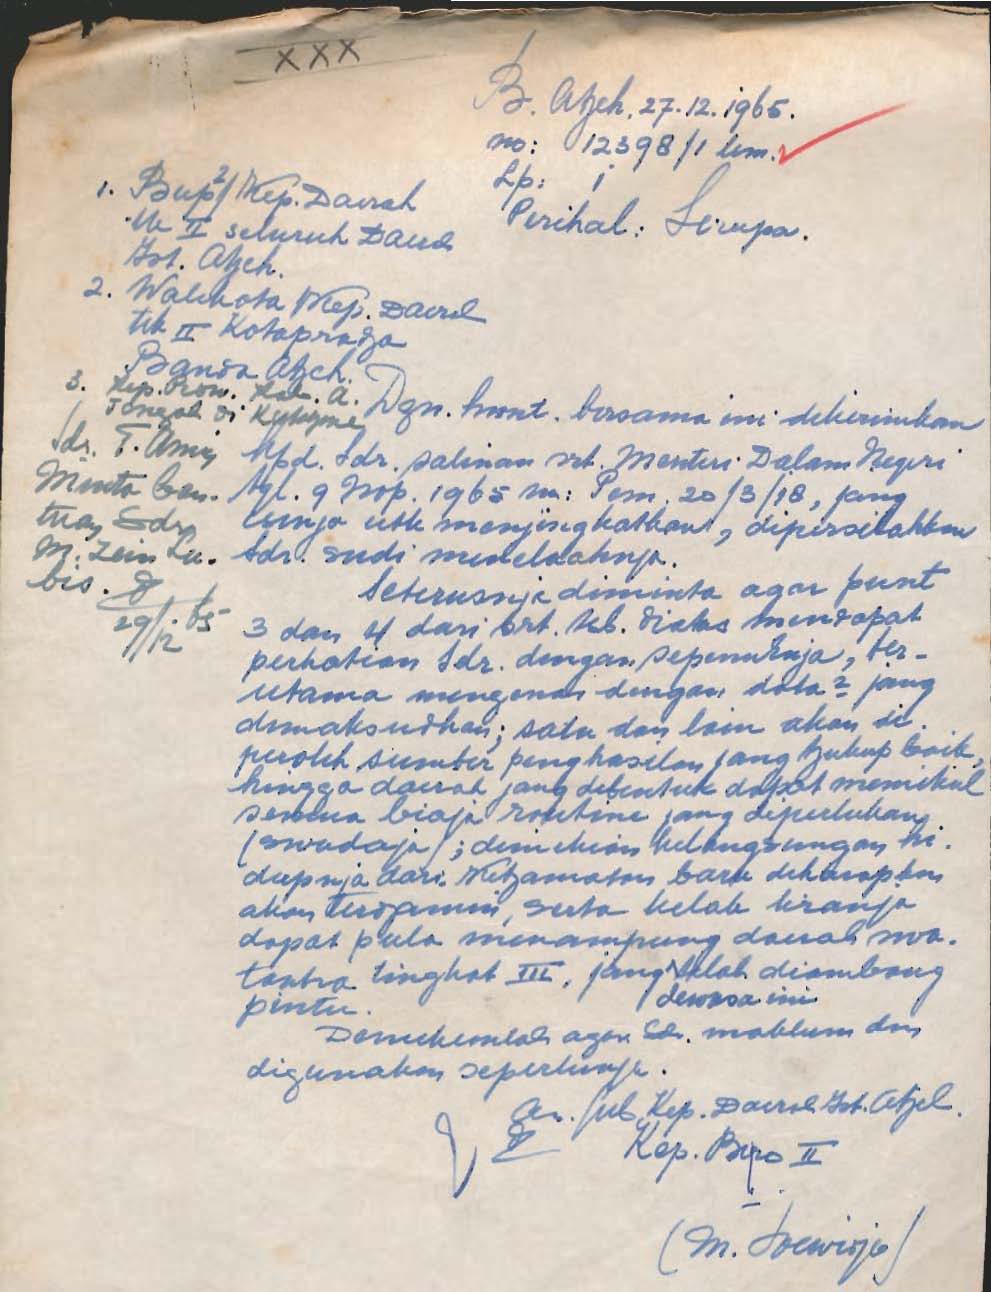 XXX
B. Atjeh, 27.12.1965.
no: 12398/1 Um.
Lp: 1
Perihal: Serupa.
1. Bup²/Kep. Daerah
tk II seluruh Daerah
Ist. Atjeh.
2. Walikota/Kep. Daerah
tk II Kotapradja
Banda Atjeh.
3. Kep. Prow. Kab. A.
Tengah di
Sdr. T. Amin
Minta ban-
tuan Sdr.
M. Zein Lu-
bis.
29/12 65
Dgn. hormt. bersama ini dikirimkan
kpd. Sdr. salinan srt. Menteri Dalam Negeri
tgl. 9 Nop. 1965 no: Pem. 20/3/18, jang
bunja utk menjingkatkan, dipersilahkan
Sdr. sudi menelaahnja.
Seterusnja diminta agar punt
3 dan 4 dari srt. tsb. diatas mendapat
perhatian Sdr. dengan sepenuhnja, ter-
utama mengenai dengan data² jang
dimaksudkan; satu dan lain akan di-
peroleh sumber penghasilan jang tjukup baik,
hingga daerah jang dibentuk dapat memikul
semua biaja routine jang diperlukan
(swadaja); demikian kelangsungan hi-
dupnja dari Ketjamatan baru diharapkan
akan terdjamin, serta kelak kiranja
dapat pula menampung daerah swa-
tantra tingkat III, jang telah diambang
dewasa ini
pintu.
Demikianlah agar Sdr. maklum dan
digunakan seperlunja.
An. Gub. Kep. Daerah Ist. Atjeh.
Kep. Biro II
(M. Soewirjo)